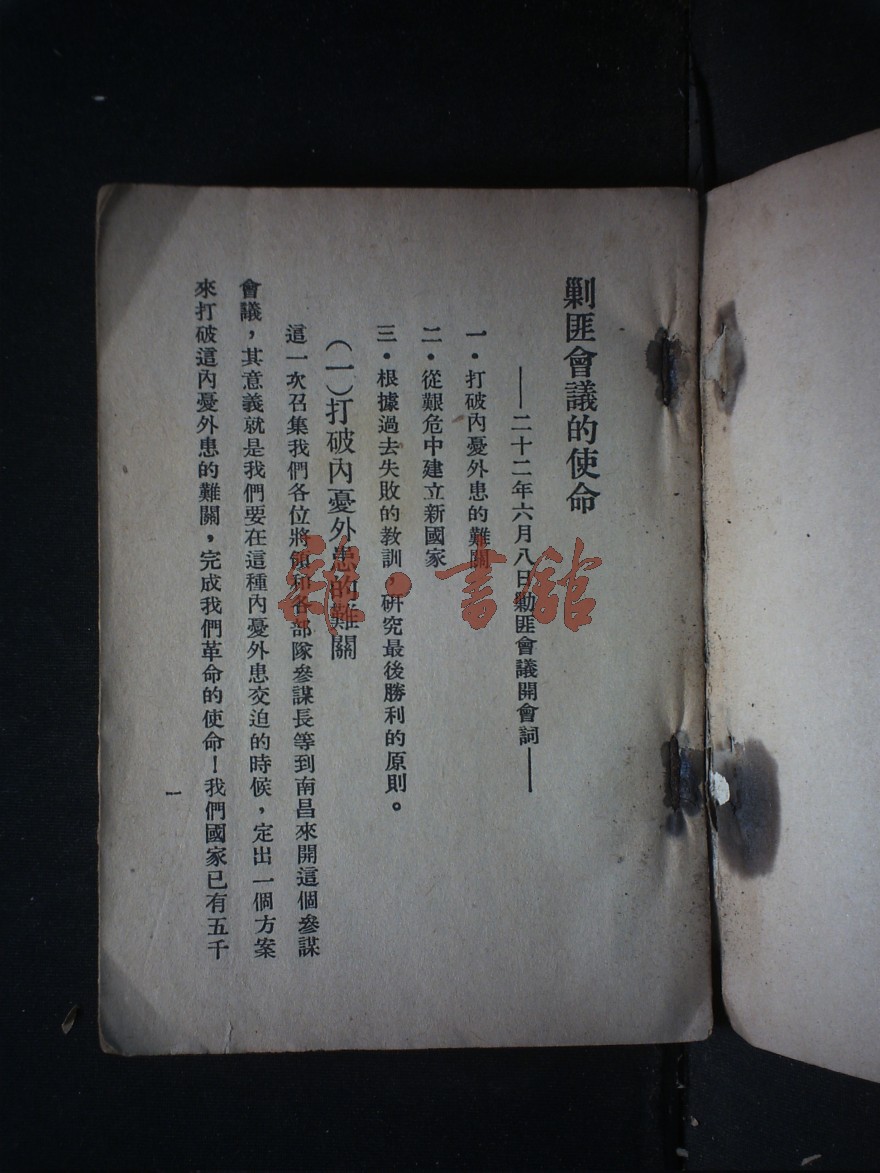 剿匪會議的使命
——二十二年六月八日勦匪會議開會詞——
一・打破內憂外患的難關
二・從艱危中建立新國家
三・根據過去失敗的教訓，研究最後勝利的原則。
（一）打破內憂外患的難關
這一次召集我們各位將領和各部隊參謀長等到南昌來開這個參謀
會議，其意義就是我們要在這種內憂外患交迫的時候，定出一個方案
來打破這內憂外患的難關，完成我們革命的使命！我們國家已有五千
一
雜・書館